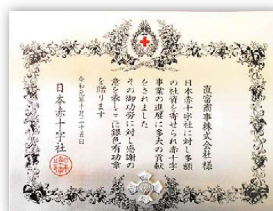 直富商事株式会社 様
日本赤十字社に対し多額
の社資を寄せられ赤十字
事業の進展に多大の貢献
をされました
その御功労に対し感謝の
意を表しここに銀色有功章
を贈ります
日本赤十字社